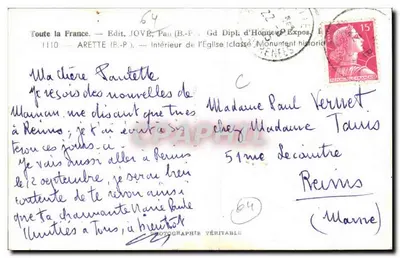 64
Toute la France. — Edit. JOVÉ, Pau (B.-P.) Gd Dipl. d'Honneur Expos.
1110 — ARETTE (B.-P.) — Intérieur de l'Eglise (classé Monument historique)
15F
Ma chère Paulette
Je reçois des nouvelles de
Maman me disant que tu es
à Reims, je t'ai écrit à
ces jours-ci.
Je vais aussi aller à Reims
le 2 septembre, je serai bien
contente de te revoir ainsi
que ta charmante Marie Paule
Amitiés à tous, à bientôt
C
Madame Paul Vernet
chez Madame Tans
51 rue Lecointre
Reims
(Marne)
64
PHOTOGRAPHIE VÉRITABLE